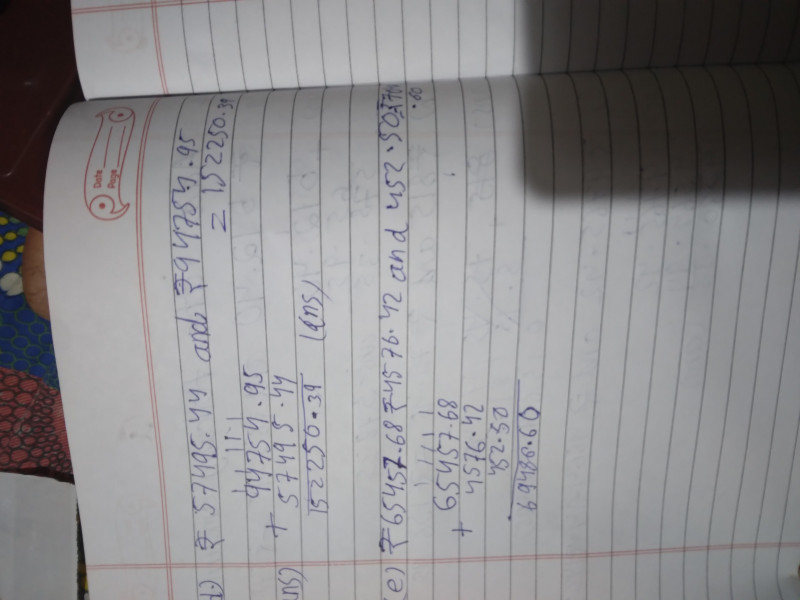 Date
Page
d) ₹ 57495.44 and ₹94754.95
= 152250.39
94754.95
ans) + 57495.44
152250.39 (ans)
(e) ₹65457.68 ₹4576.42 and 452.50
.60
+ 65457.68
4576.42
452.50
69486.60